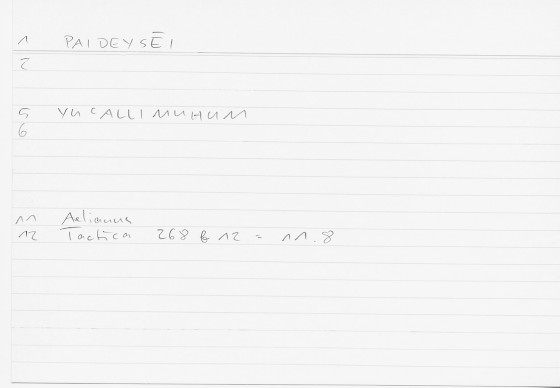 1 PAIDEYSĒI
2
5 YUʿALLIMUHUM
6
11 Aelianus
12 Tactica 268 b 12 = 11.8